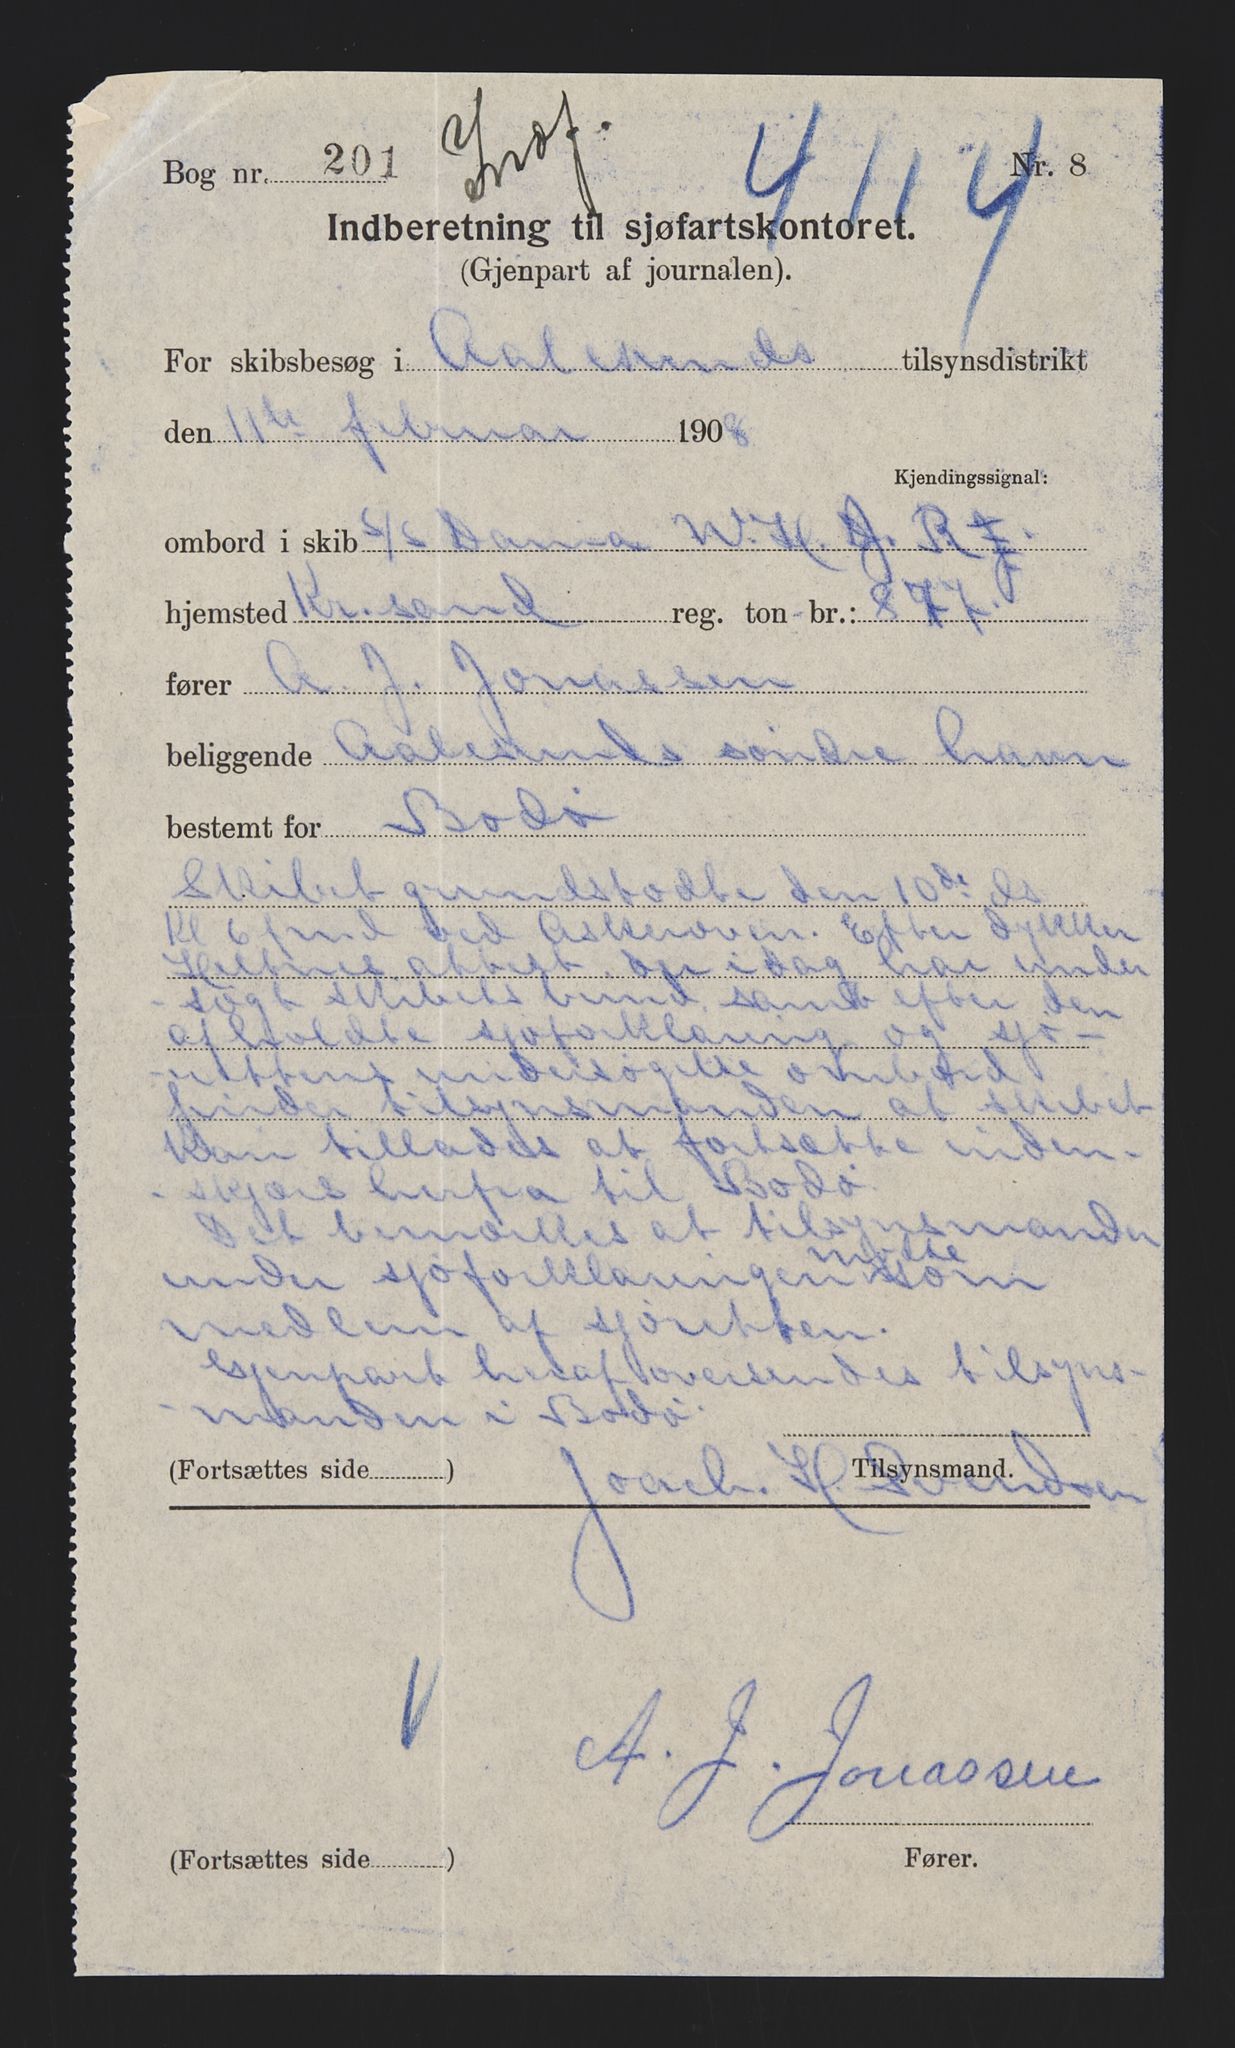 Bog nr. 201
4114
Nr. 8
Indberetning til sjøfartskontoret.
(Gjenpart af journalen).
For skibsbesøg i Aalesunds tilsynsdistrikt
den 11te februar 1908
Kjendingssignal:
ombord i skib S/S Dania
hjemsted Kr.sand reg. ton br.: 877.
fører A. J. Jonassen
beliggende Aalesunds söndre havn
bestemt for Bodö
Skibet grundstødte den 10de ds
Kl 6 fmd ved Efter dykker
attest, der idag har under
-søgt skibets bund, samt efter den
afholdte sjøforklaring og sjø-
-rettens undersøgelse ombord
finder tilsynsmanden at skibet
Kan tillades at fortsætte inden-
-skjærs herfra til Bodö.
Det bemærkes at tilsynsmanden
under sjøforklaringen mötte som
medlem af sjöretten.
Gjenpart heraf oversendes tilsyns-
-manden i Bodö.
(Fortsættes side ) Tilsynsmand.
Joach. H. Svendsen
A. J. Jonassen
(Fortsættes side ) Fører.